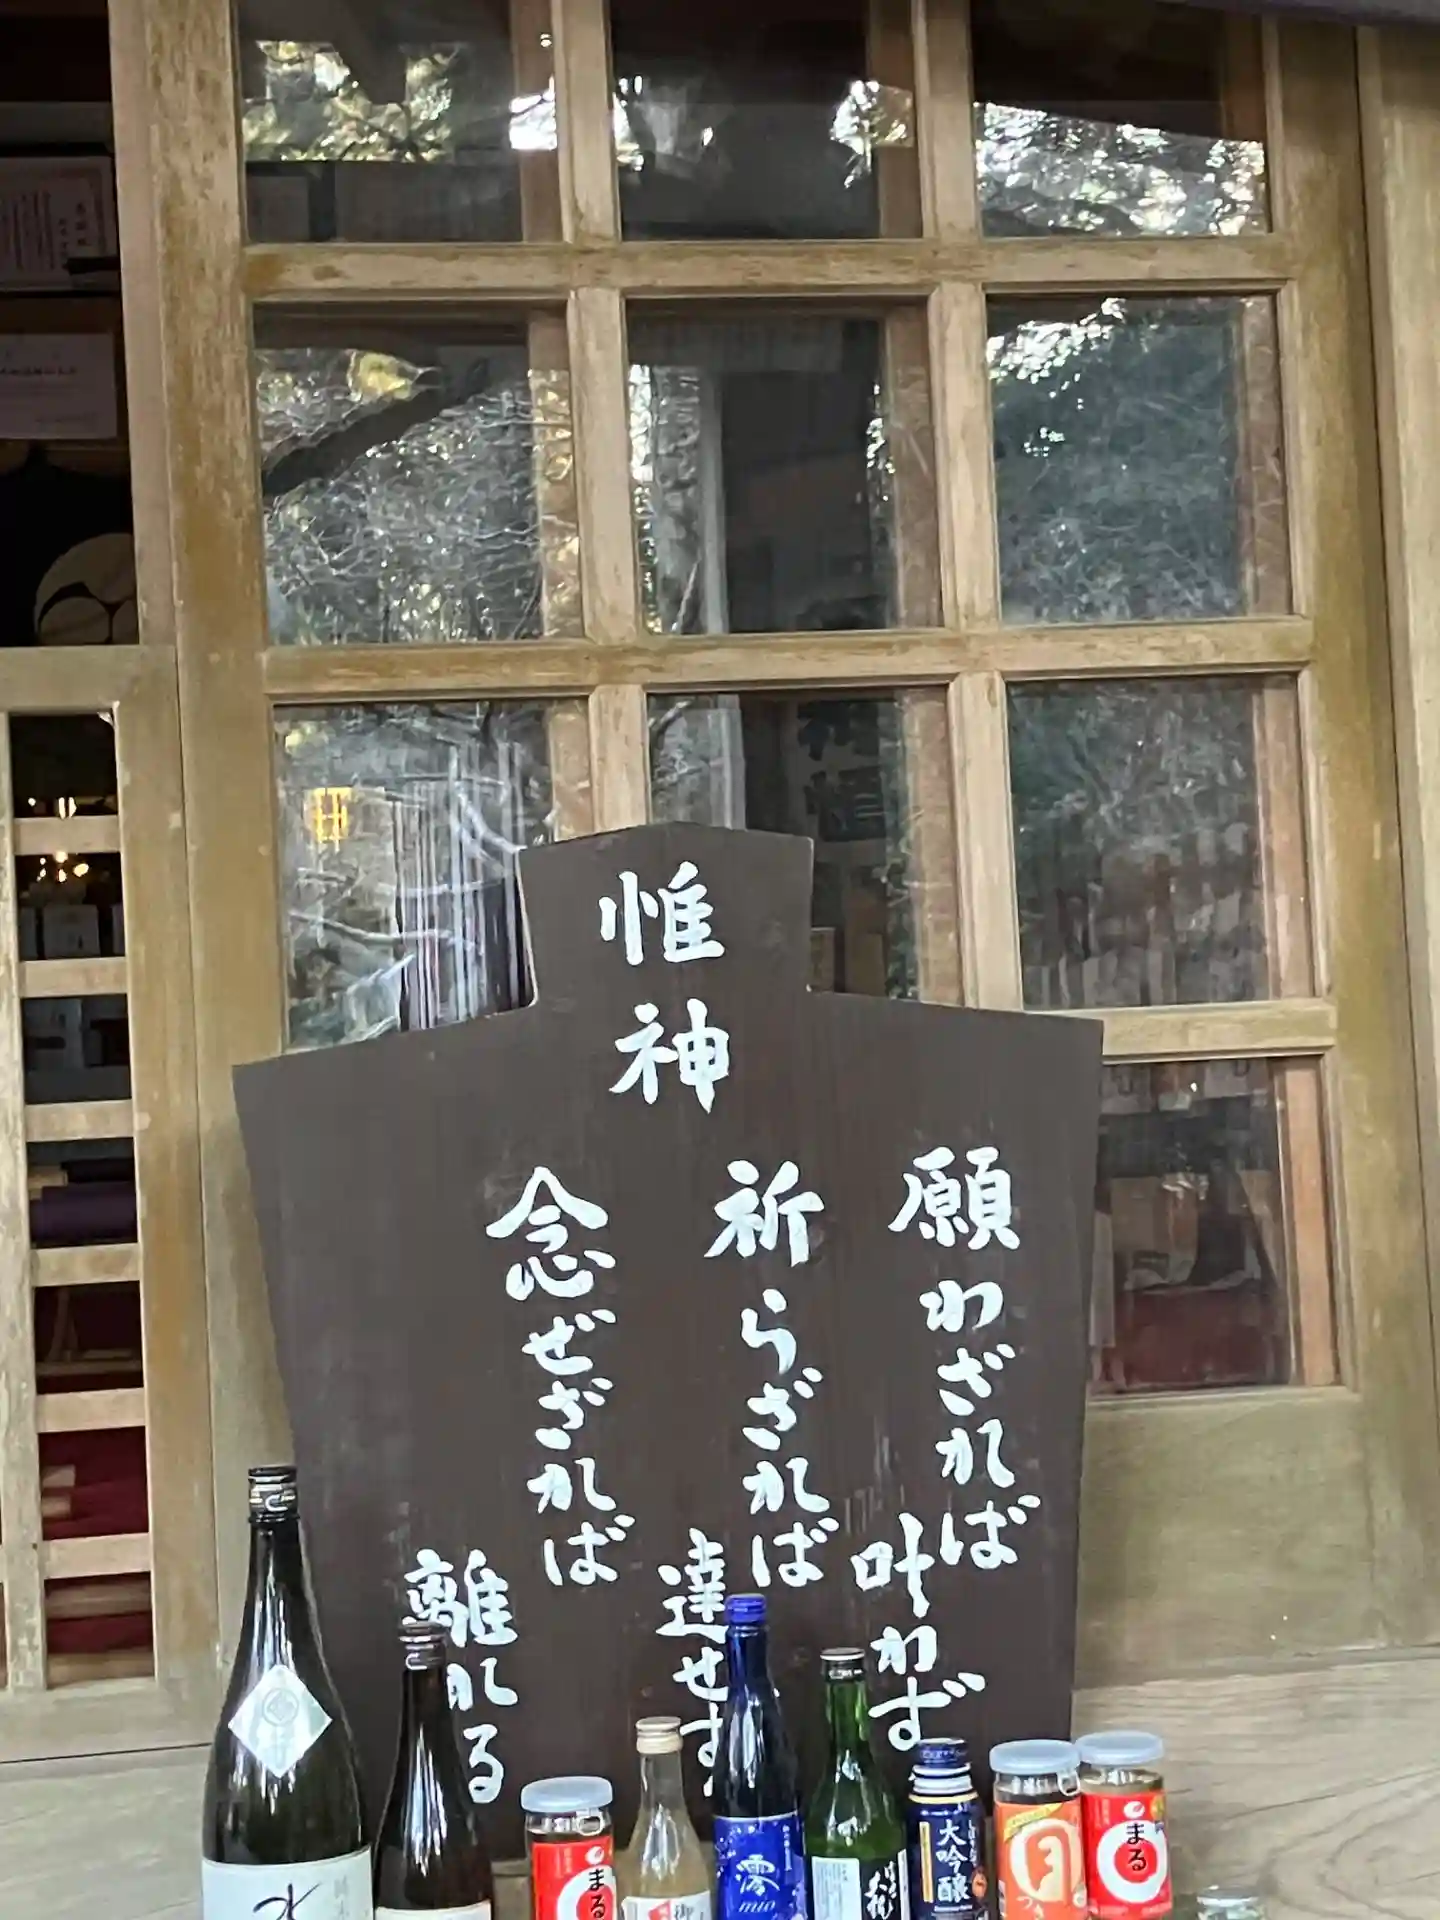 惟神
願わざれば
叶わず
祈らざれば
達せず
念ぜざれば
離れる
まる
澪
mio
大吟醸
月
つき
まる